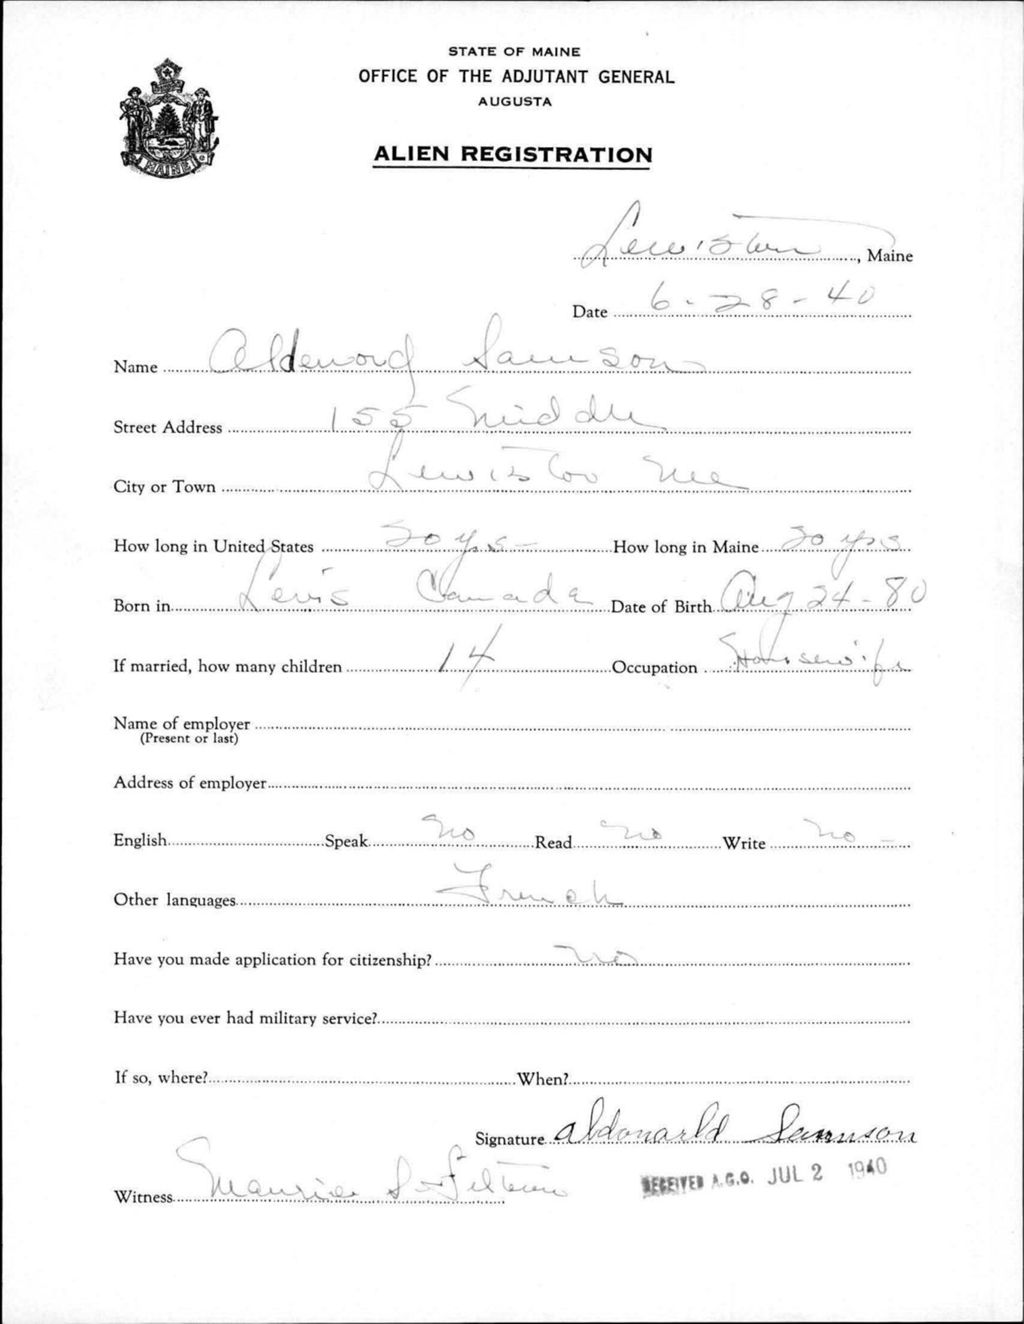 STATE OF MAINE
OFFICE OF THE ADJUTANT GENERAL
AUGUSTA
ALIEN REGISTRATION
MAINE
Lewiston, Maine
Date 6-28-40
Name Samson
Street Address 155 Middle
City or Town Lewiston Me
How long in United States yrs- How long in Maine yrs
Born in Levis Canada Date of Birth Aug 24-80
If married, how many children 14 Occupation Housewife
Name of employer
(Present or last)
Address of employer
English Speak No Read No Write No -
Other languages French
Have you made application for citizenship? No
Have you ever had military service?
If so, where? When?
Signature Aldonarld Samson
Witness Maurice
RECEIVED A.G.O. JUL 2 1940